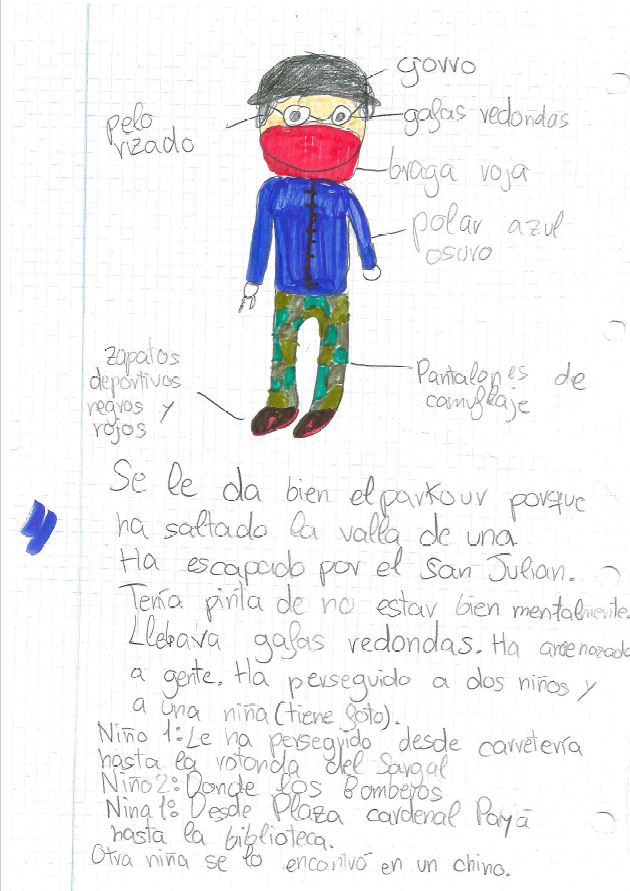 gorro
pelo
rizado
gafas redondas
braga roja
polar azul
osuro
zapatos
deportivos
negros y
rojos
Pantalones de
camuflaje
Se le da bien el parkour porque
ha saltado la valla de una.
Ha escapado por el San Julian.
Tenía pinta de no estar bien mentalmente.
Llebava gafas redondas. Ha amenazado
a gente. Ha perseguido a dos niños y
a una niña (tiene foto).
Niño 1: Le ha perseguido desde carretería
hasta la rotonda del Sargal
Niño 2: Donde los Bomberos
Nina 1: Desde Plaza cardenal Payá
hasta la biblioteca.
Otra niña se lo encontró en un chino.